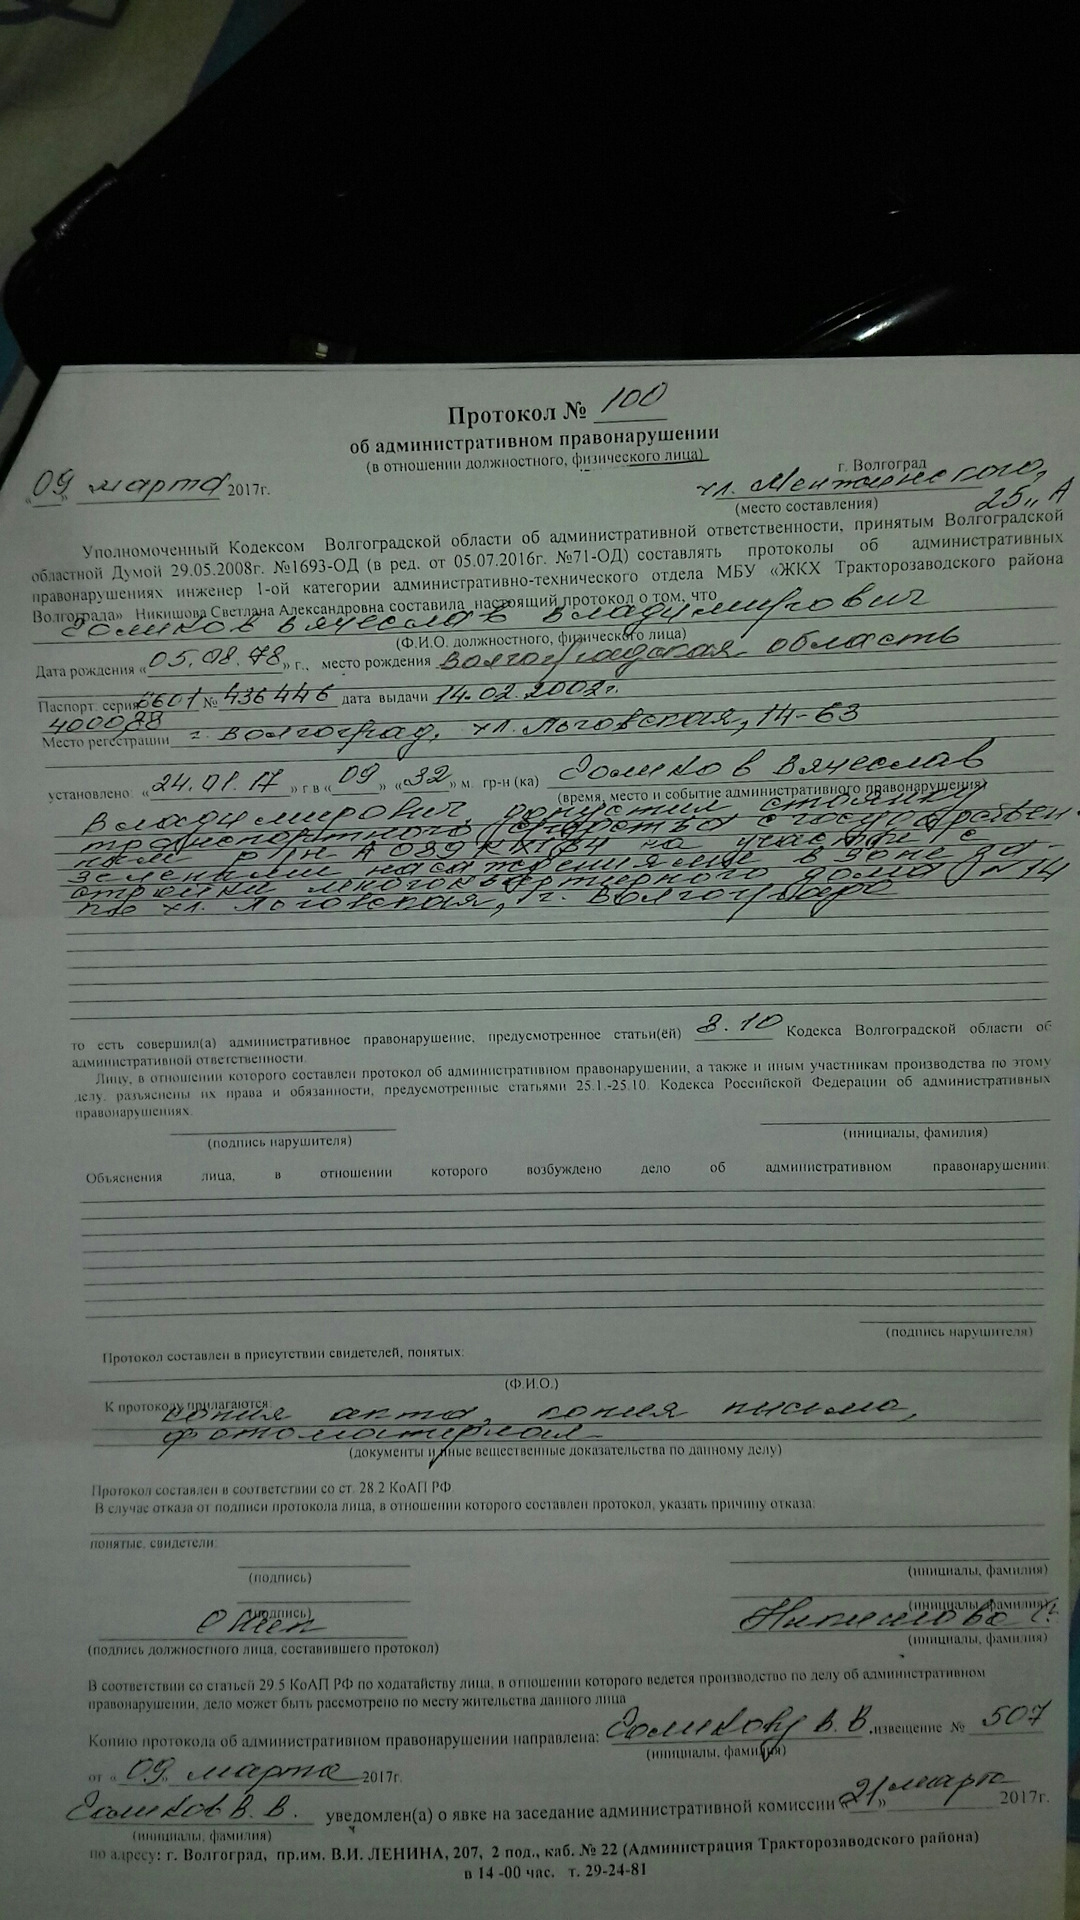 Протокол № 100
об административном правонарушении
(в отношении должностного, физического лица)
«09» марта 2017г.
г. Волгоград
ул. Менжинского,
(место составления) 25 „А
Уполномоченный Кодексом Волгоградской области об административной ответственности, принятым Волгоградской
областной Думой 29.05.2008г. №1693-ОД (в ред. от 05.07.2016г. №71-ОД) составлять протоколы об административных
правонарушениях инженер 1-ой категории административно-технического отдела МБУ «ЖКХ Тракторозаводского района
Волгограда» Никишова Светлана Александровна составила настоящий протокол о том, что
Вячеслав Владимирович
(Ф.И.О. должностного, физического лица)
Дата рождения «05.08.78» г., место рождения Волгоградская область
Паспорт: серия 0601 № 436446 дата выдачи 14.02.2002г.
400088
Место регестрации г. Волгоград, ул. Льговская, 14-63
установлено: «24.01.17» г в «09» «32» м. гр-н (ка) Вячеслав
(время, место и событие административного правонарушения)
Владимирович, допустил стоянку
транспортного средства с государствен-
ным р/н А 039 на участке с
зелеными насаждениями в зоне за-
стройки многоквартирного дома №14
по ул. Льговская, г. Волгограда
то есть совершил(а) административное правонарушение, предусмотренное статьи(ёй) 8.10 Кодекса Волгоградской области об
административной ответственности.
Лицу, в отношении которого составлен протокол об административном правонарушении, а также и иным участникам производства по этому
делу, разъяснены их права и обязанности, предусмотренные статьями 25.1.-25.10. Кодекса Российской Федерации об административных
правонарушениях.
(подпись нарушителя) (инициалы, фамилия)
Объяснения лица, в отношении которого возбуждено дело об административном правонарушении:
(подпись нарушителя)
Протокол составлен в присутствии свидетелей, понятых:
(Ф.И.О.)
К протоколу прилагаются:
копия акта, копия письма,
фотоматериал
(документы и иные вещественные доказательства по данному делу)
Протокол составлен в соответствии со ст. 28.2 КоАП РФ
В случае отказа от подписи протокола лица, в отношении которого составлен протокол, указать причину отказа:
понятые, свидетели:
(подпись) (инициалы, фамилия)
(подпись) (инициалы, фамилия)
Никишова С.
(подпись должностного лица, составившего протокол) (инициалы, фамилия)
В соответствии со статьей 29.5 КоАП РФ по ходатайству лица, в отношении которого ведется производство по делу об административном
правонарушении, дело может быть рассмотрено по месту жительства данного лица
Копию протокола об административном правонарушении направлена: В.В. извещение № 507
(инициалы, фамилия)
от «09» марта 2017г.
В.В. уведомлен(а) о явке на заседание административной комиссии «21» марта 2017г.
(инициалы, фамилия)
по адресу: г. Волгоград, пр.им. В.И. ЛЕНИНА, 207, 2 под., каб. № 22 (Администрация Тракторозаводского района)
в 14 -00 час. т. 29-24-81